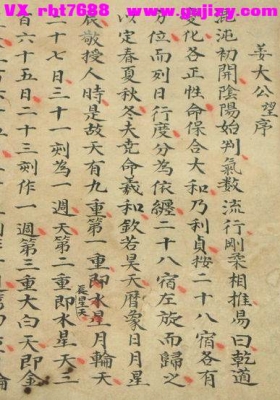 VX rht7688 www.gujizy.com
姜太公望序
混沌初開陰陽始判氣数流行剛柔相推易曰乾道
变化各正性命保合大和乃利貞按二十八宿各有
分位而列日行度分為依纏二十八宿左旋而歸之
以定春夏秋冬夫尭命羲和欽若昊天暦象日月星
辰敬授人時是故天有九重第一重即水星月輪天
二十七日三十一刻為一週天第二重即水星天三
辰星天
百六十五日二十三刻作一週第三重大白天即金